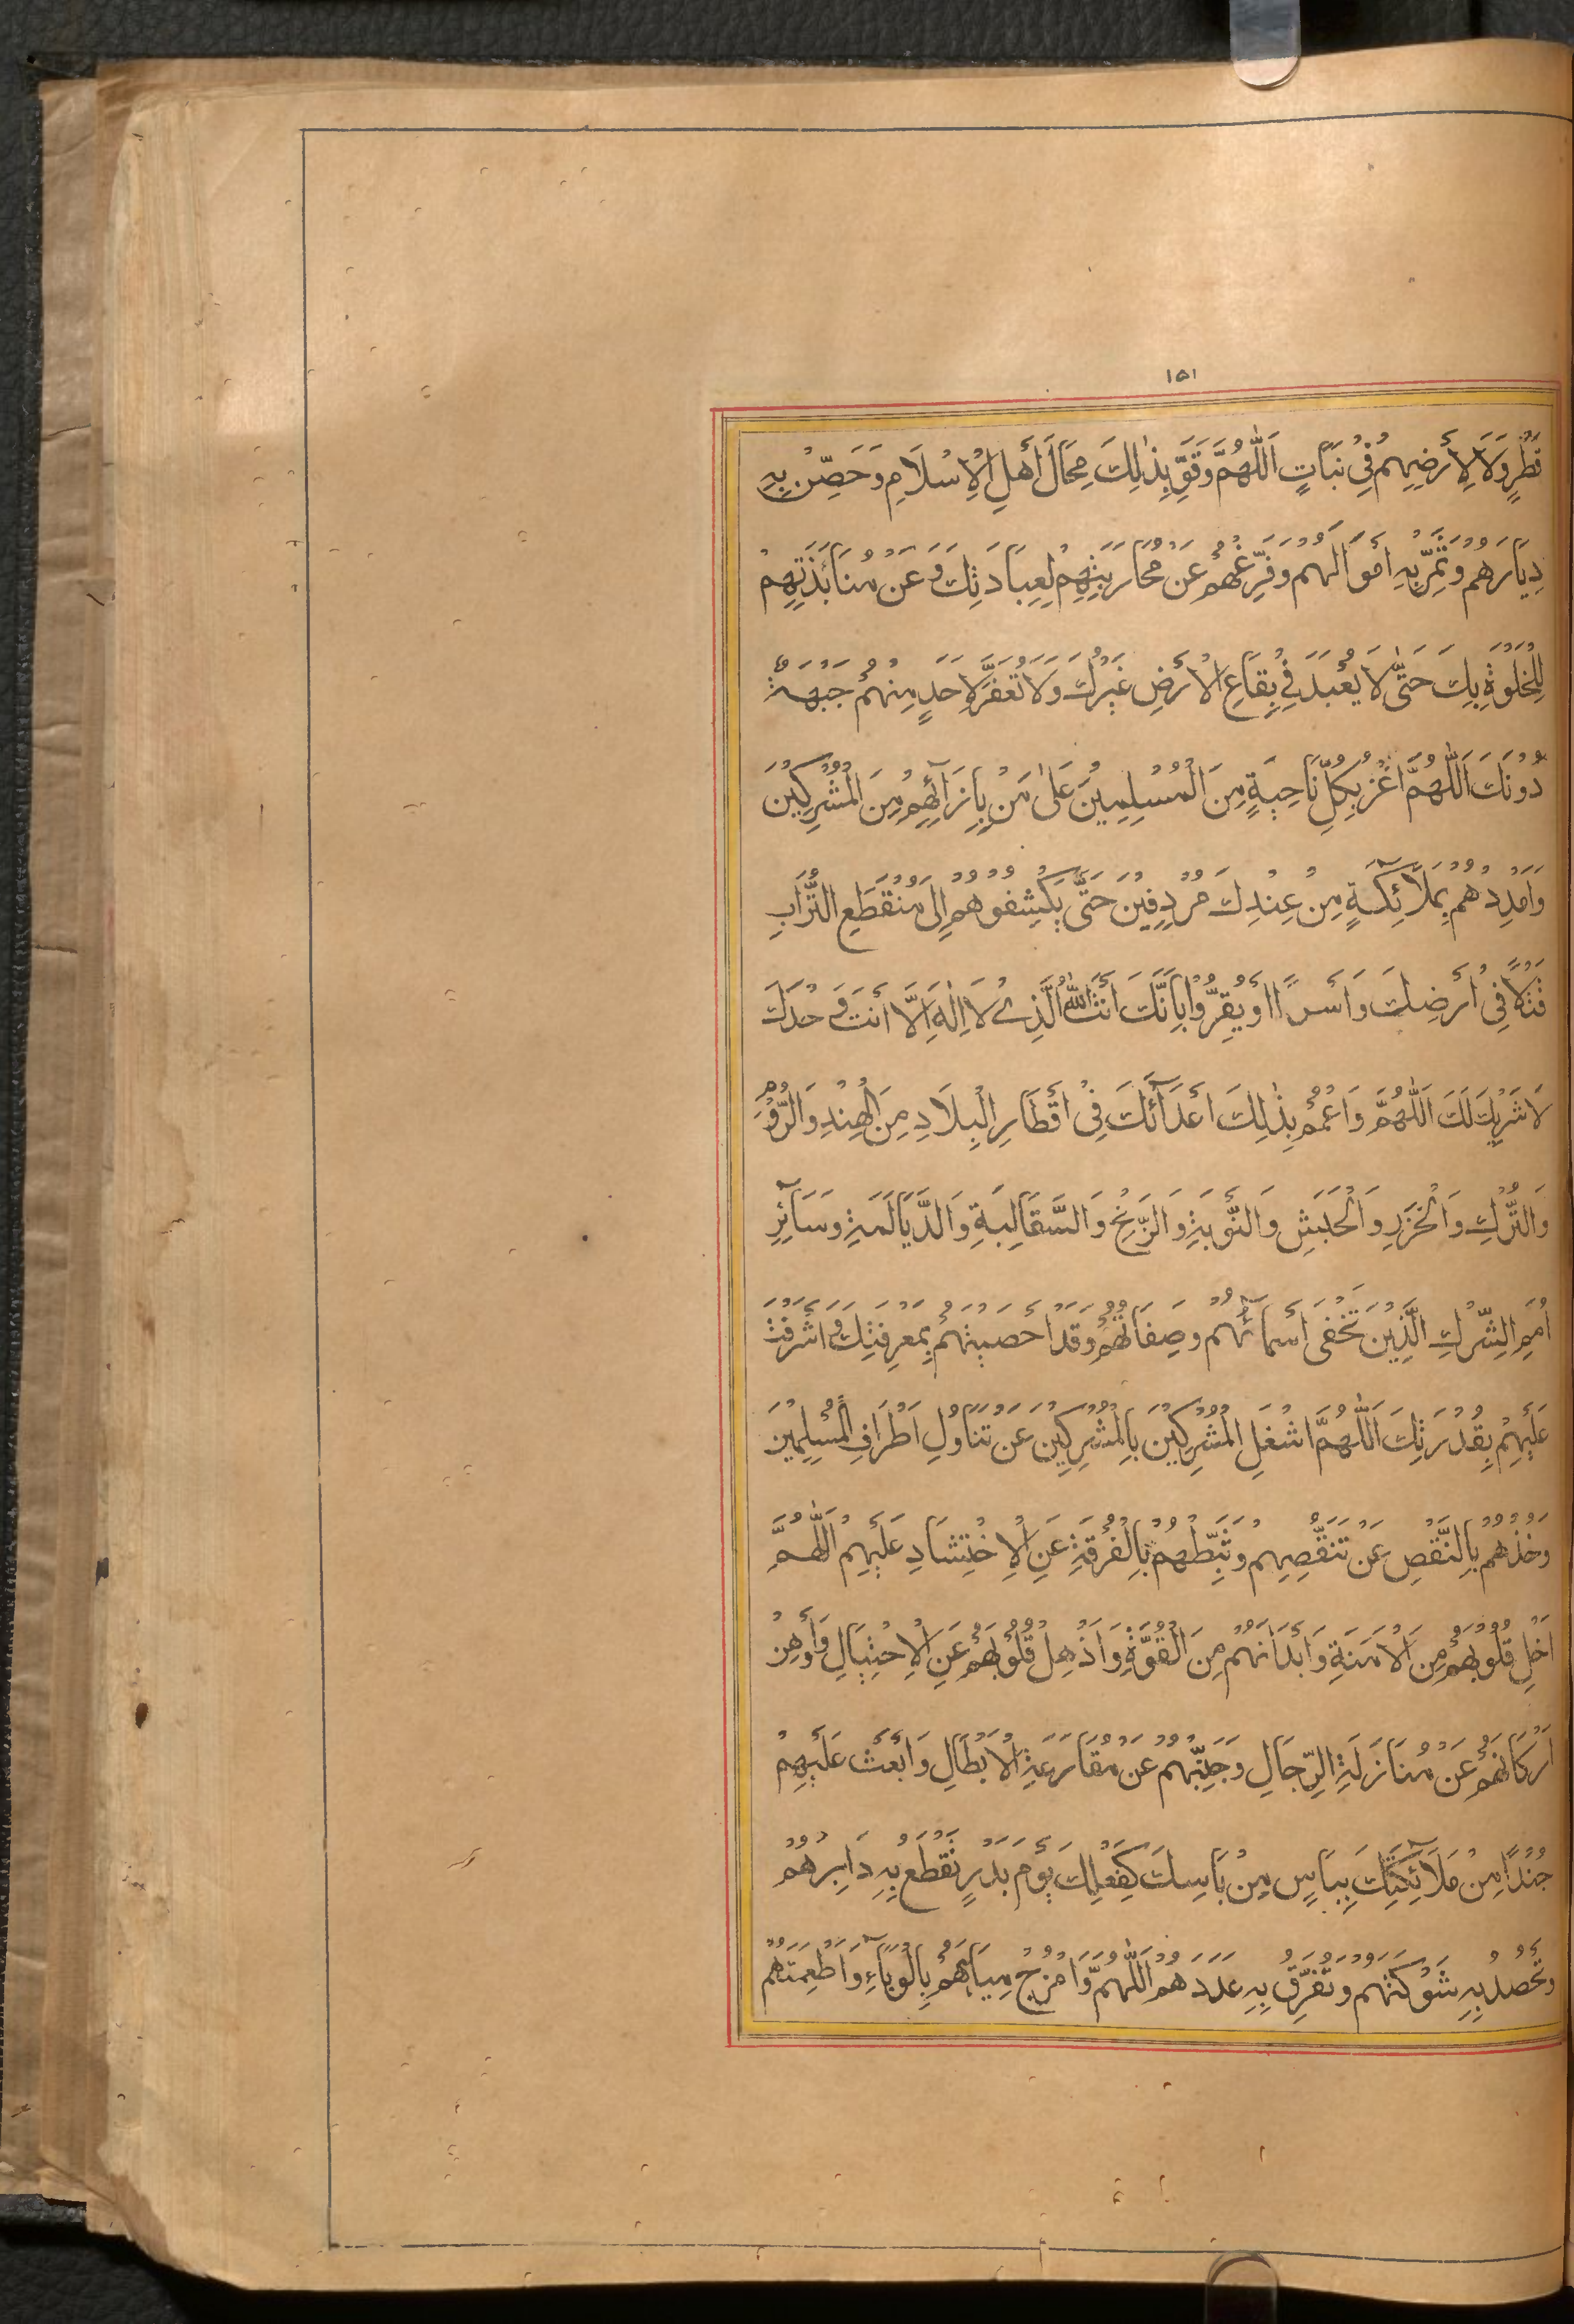 ١٥١
قَطْرٍ وَلَا لِأَرْضِهِمْ فِي نَبَاتٍ اَللّٰهُمَّ وَقَوِّ بِذٰلِكَ مِحَالَ أَهْلِ الْإِسْلَامِ وَحَصِّنْ بِهِ
دِيَارَهُمْ وَثَمِّرْ بِهِ أَمْوَالَهُمْ وَفَرِّغْهُمْ عَنْ مُحَارَبَتِهِمْ لِعِبَادَتِكَ وَعَنْ مُنَابَذَتِهِمْ
لِلْخَلْوَةِ بِكَ حَتّٰى لَا يُعْبَدَ فِي بِقَاعِ الْأَرْضِ غَيْرُكَ وَلَا تُعَفَّرَ لِأَحَدٍ مِنْهُمْ جَبْهَةٌ
دُوْنَكَ اَللّٰهُمَّ اغْزُ بِكُلِّ نَاحِيَةٍ مِنَ الْمُسْلِمِيْنَ عَلٰى مَنْ بِإِزَآئِهِمْ مِنَ الْمُشْرِكِيْنَ
وَأَمْدِدْهُمْ بِمَلَآئِكَةٍ مِنْ عِنْدِكَ مُرْدِفِيْنَ حَتّٰى يَكْشِفُوْهُمْ إِلٰى مُنْقَطَعِ التُّرَابِ
قَتْلًا فِيْ أَرْضِكَ وَأَسْرًا أَوْ يُقِرُّوْا بِأَنَّكَ أَنْتَ اللّٰهُ الَّذِيْ لَا إِلٰهَ إِلَّا أَنْتَ وَحْدَكَ
لَا شَرِيْكَ لَكَ اَللّٰهُمَّ وَاعْمُمْ بِذٰلِكَ أَعْدَآئَكَ فِيْ أَقْطَارِ الْبِلَادِ مِنَ الْهِنْدِ وَالرُّوْمِ
وَالتُّرْكِ وَالْخَزَرِ وَالْحَبَشِ وَالنُّوْبَةِ وَالزَّنْجِ وَالسَّقَالِبَةِ وَالدَّيَالَمَةِ وَسَآئِرِ
أُمَمِ الشِّرْكِ الَّذِيْنَ تَخْفٰى أَسْمَآئُهُمْ وَصِفَاتُهُمْ وَقَدْ أَحْصَيْتَهُمْ بِمَعْرِفَتِكَ وَأَشْرَفْتَ
عَلَيْهِمْ بِقُدْرَتِكَ اَللّٰهُمَّ اشْغَلِ الْمُشْرِكِيْنَ بِالْمُشْرِكِيْنَ عَنْ تَنَاوُلِ أَطْرَافِ الْمُسْلِمِيْنَ
وَخُذْهُمْ بِالنَّقْصِ عَنْ تَنَقُّصِهِمْ وَثَبِّطْهُمْ بِالْفُرْقَةِ عَنِ الْاِحْتِشَادِ عَلَيْهِمْ اَللّٰهُمَّ
أَخْلِ قُلُوْبَهُمْ مِنَ الْأَمَنَةِ وَأَبْدَانَهُمْ مِنَ الْقُوَّةِ وَأَذْهِلْ قُلُوْبَهُمْ عَنِ الْاِحْتِيَالِ وَأَوْهِنْ
أَرْكَانَهُمْ عَنْ مُنَازَلَةِ الرِّجَالِ وَجَبِّنْهُمْ عَنْ مُقَارَعَةِ الْأَبْطَالِ وَابْعَثْ عَلَيْهِمْ
جُنْدًا مِنْ مَلَآئِكَتِكَ بِبَأْسٍ مِنْ بَأْسِكَ كَفِعْلِكَ يَوْمَ بَدْرٍ تَقْطَعُ بِهِ دَابِرَهُمْ
وَتَحْصُدُ بِهِ شَوْكَتَهُمْ وَتُفَرِّقُ بِهِ عَدَدَهُمْ اَللّٰهُمَّ وَامْزُجْ مِيَاهَهُمْ بِالْوَبَآءِ وَأَطْعِمَتَهُمْ